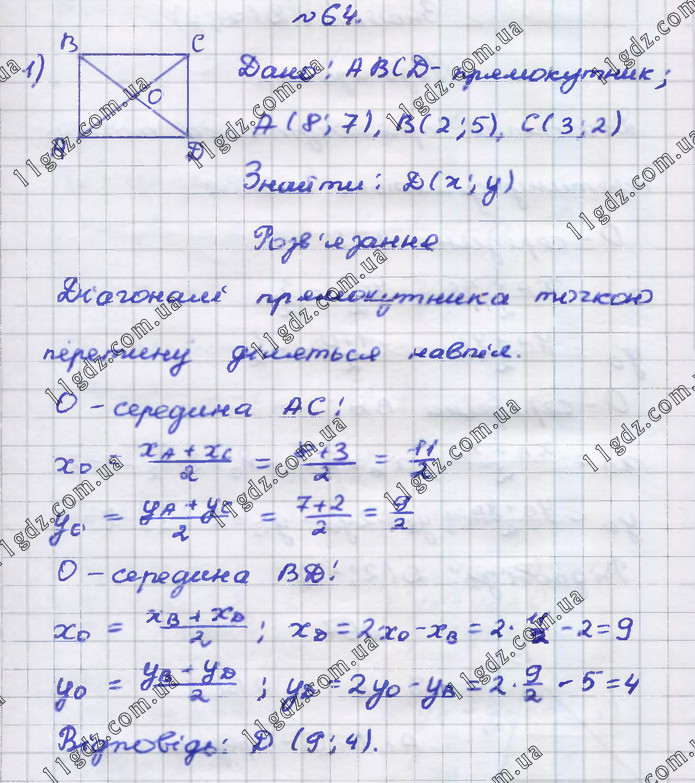 № 64.
1) B C O A D
Дано: ABCD - прямокутник;
A(8;7), B(2;5), C(3;2)
Знайти: D(x;y)
Розв'язання
Діагоналі прямокутника точкою
перетину діляться навпіл.
O - середина AC:
x_O = (x_A + x_C)/2 = (8+3)/2 = 11/2
y_O = (y_A + y_C)/2 = (7+2)/2 = 9/2
O - середина BD:
x_O = (x_B + x_D)/2; x_D = 2x_O - x_B = 2·11/2 - 2 = 9
y_O = (y_B - y_D)/2; y_D = 2y_O - y_B = 2·9/2 - 5 = 4
Відповідь: D (9;4).
11gdz.com.ua